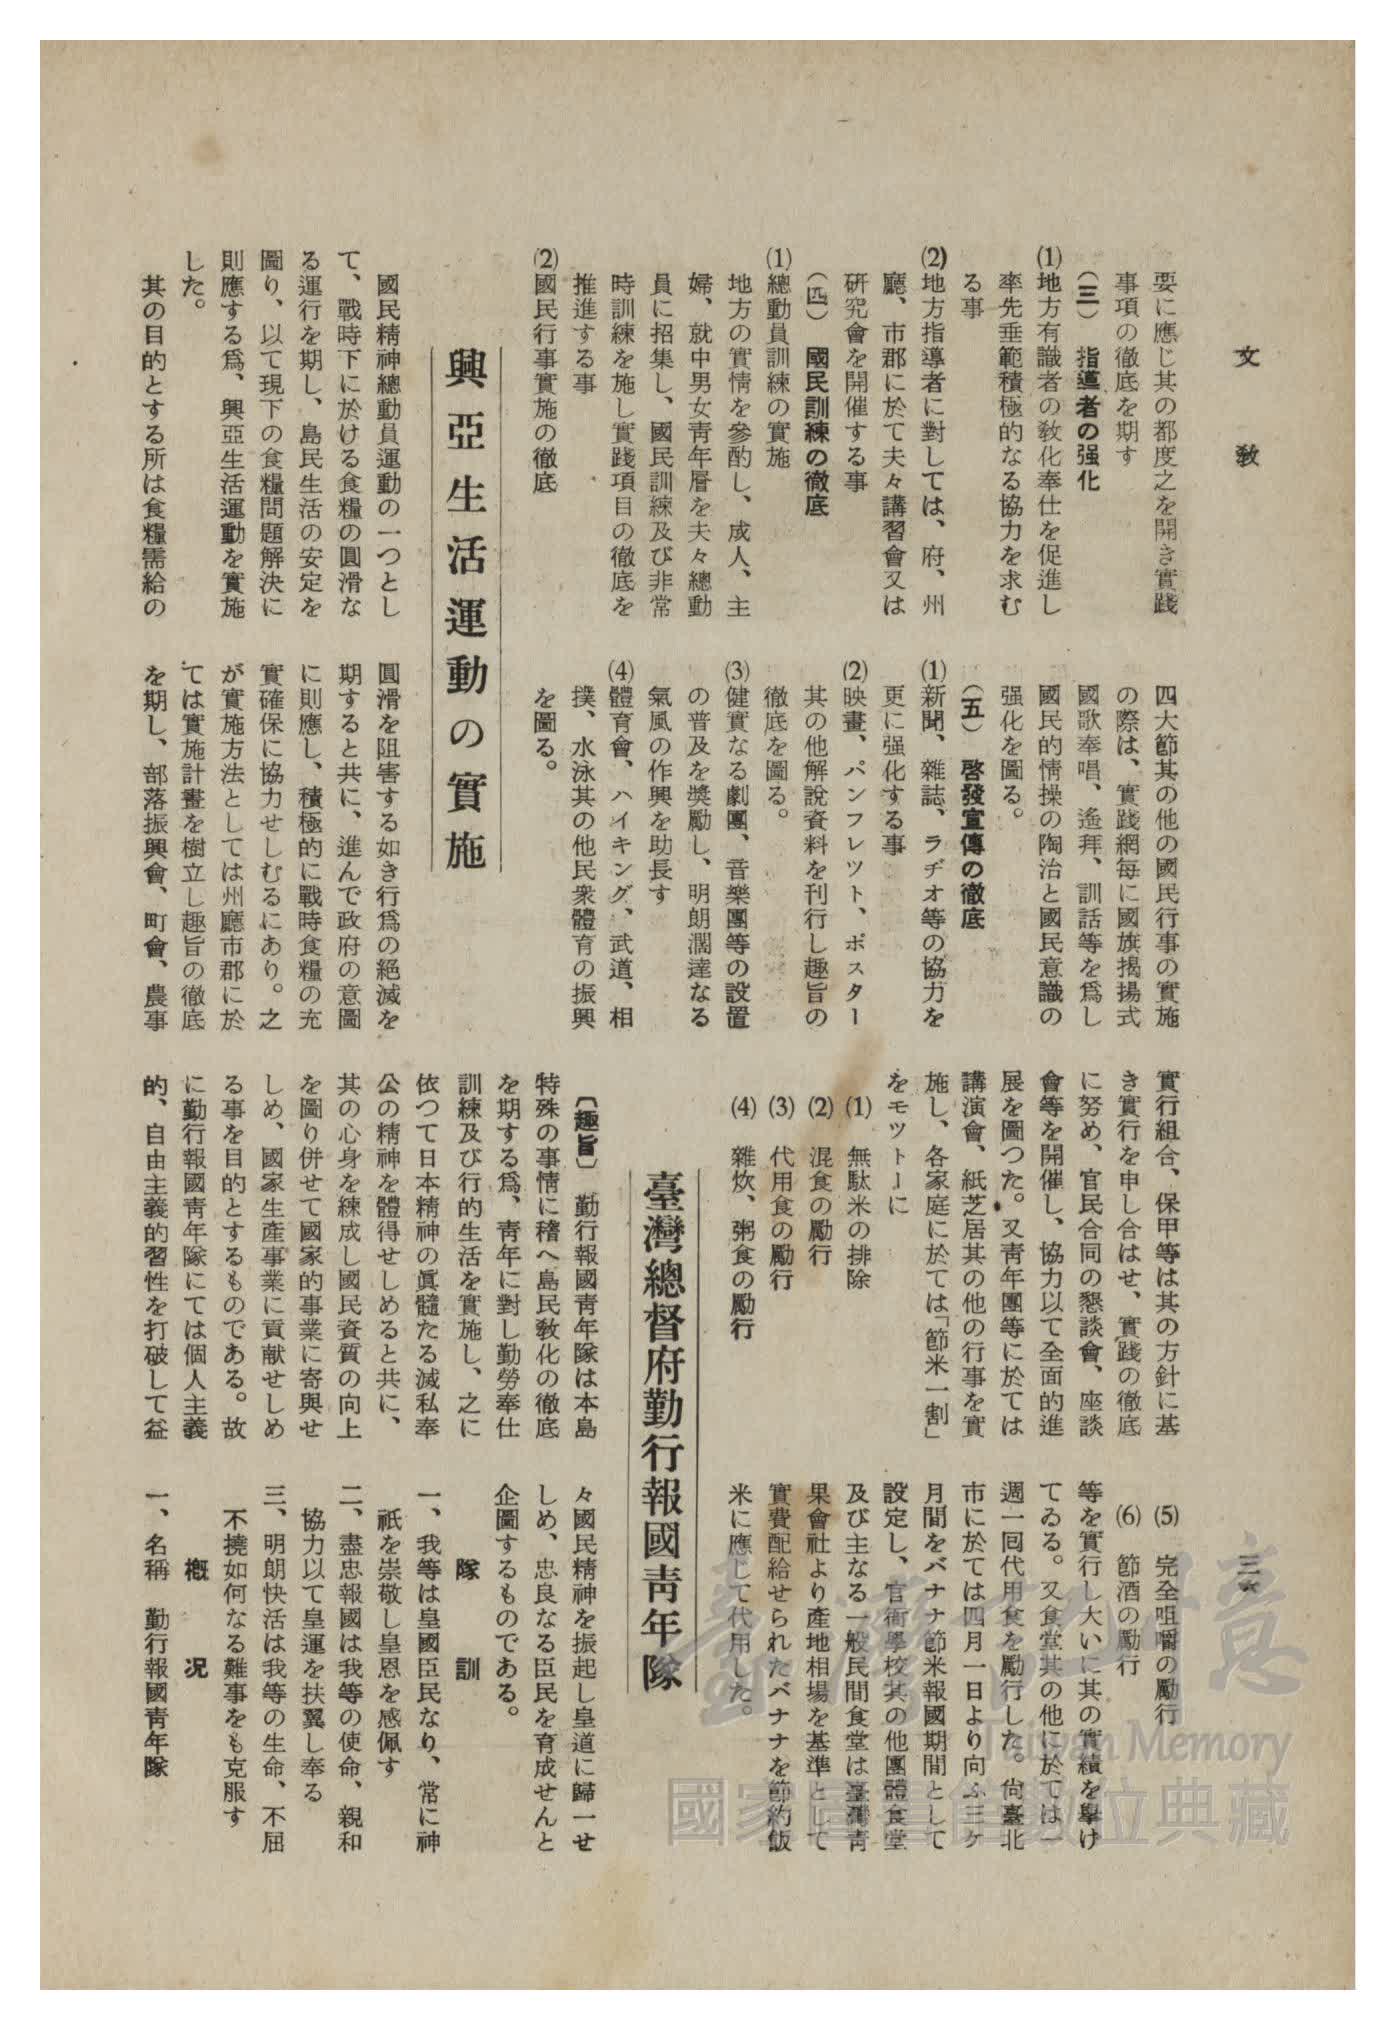 文教
要に應じ其の都度之を開き實踐
事項の徹底を期す
(三) 指導者の强化
(1)地方有識者の敎化奉仕を促進し
率先垂範積極的なる協力を求む
る事
(2)地方指導者に對しては、府、州
廳、市郡に於て夫々講習會又は
硏究會を開催する事
(四) 國民訓練の徹底
(1)總動員訓練の實施
地方の實情を參酌し、成人、主
婦、就中男女靑年層を夫々總動
員に招集し、國民訓練及び非常
時訓練を施し實踐項目の徹底を
推進する事
(2)國民行事實施の徹底
四大節其の他の國民行事の實施
の際は、實踐網每に國旗揭揚式
國歌奉唱、遙拜、訓話等を爲し
國民的情操の陶冶と國民意識の
强化を圖る。
(五) 啓發宣傳の徹底
(1)新聞、雜誌、ラヂオ等の協力を
更に强化する事
(2)映畫、パンフレツト、ポスター
其の他解說資料を刊行し趣旨の
徹底を圖る。
(3)健實なる劇團、音樂團等の設置
の普及を奬勵し、明朗濶達なる
氣風の作興を助長す
(4)體育會、ハイキング、武道、相
撲、水泳其の他民衆體育の振興
を圖る。
興亞生活運動の實施
國民精神總動員運動の一つとし
て、戰時下に於ける食糧の圓滑な
る運行を期し、島民生活の安定を
圖り、以て現下の食糧問題解決に
則應する爲、興亞生活運動を實施
した。
其の目的とする所は食糧需給の
圓滑を阻害する如き行爲の絕滅を
期すると共に、進んで政府の意圖
に則應し、積極的に戰時食糧の充
實確保に協力せしむるにあり。之
が實施方法としては州廳市郡に於
ては實施計畫を樹立し趣旨の徹底
を期し、部落振興會、町會、農事
實行組合、保甲等は其の方針に基
き實行を申し合はせ、實踐の徹底
に努め、官民合同の懇談會、座談
會等を開催し、協力以て全面的進
展を圖つた。又靑年團等に於ては
講演會、紙芝居其の他の行事を實
施し、各家庭に於ては「節米一割」
をモツトーに
(1) 無駄米の排除
(2) 混食の勵行
(3) 代用食の勵行
(4) 雜炊、粥食の勵行
(5) 完全咀嚼の勵行
(6) 節酒の勵行
等を實行し大いに其の實績を擧け
てゐる。又食堂其の他に於ては一
週一囘代用食を勵行した。尙臺北
市に於ては四月一日より向ふ三ケ
月間をバナナ節米報國期間として
設定し、官衙學校其の他團體食堂
及び主なる一般民間食堂は臺灣靑
果會社より產地相場を基準として
實費配給せられたバナナを節約飯
米に應じて代用した。
臺灣總督府勤行報國靑年隊
〔趣旨〕 勤行報國靑年隊は本島
特殊の事情に稽へ島民敎化の徹底
を期する爲、靑年に對し勤勞奉仕
訓練及び行的生活を實施し、之に
依つて日本精神の眞髓たる滅私奉
公の精神を體得せしめると共に、
其の心身を練成し國民資質の向上
を圖り併せて國家的事業に寄與せ
しめ、國家生產事業に貢献せしめ
る事を目的とするものである。故
に勤行報國靑年隊にては個人主義
的、自由主義的習性を打破して益
々國民精神を振起し皇道に歸一せ
しめ、忠良なる臣民を育成せんと
企圖するものである。
隊訓
一、我等は皇國臣民なり、常に神
祇を崇敬し皇恩を感佩す
二、盡忠報國は我等の使命、親和
協力以て皇運を扶翼し奉る
三、明朗快活は我等の生命、不屈
不撓如何なる難事をも克服す
槪況
一、名稱 勤行報國靑年隊
臺灣記憶
Taiwan Memory
國家圖書館數位典藏